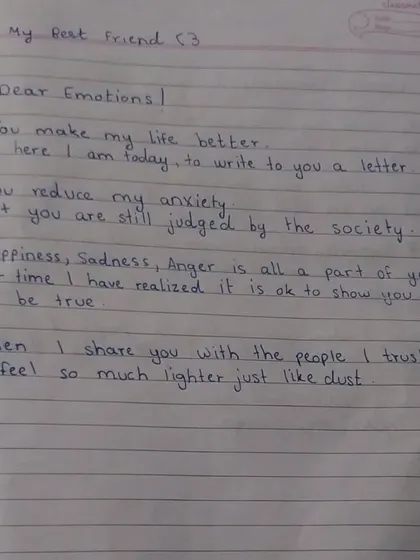 My Best Friend <3
Dear Emotions!
ou make my life better.
here I am today, to write to you a letter.
ou reduce my anxiety.
t you are still judged by the society.
ppiness, Sadness, Anger is all a part of y
time I have realized it is ok to show you
be true.
en I share you with the people I trus
feel so much lighter just like dust.